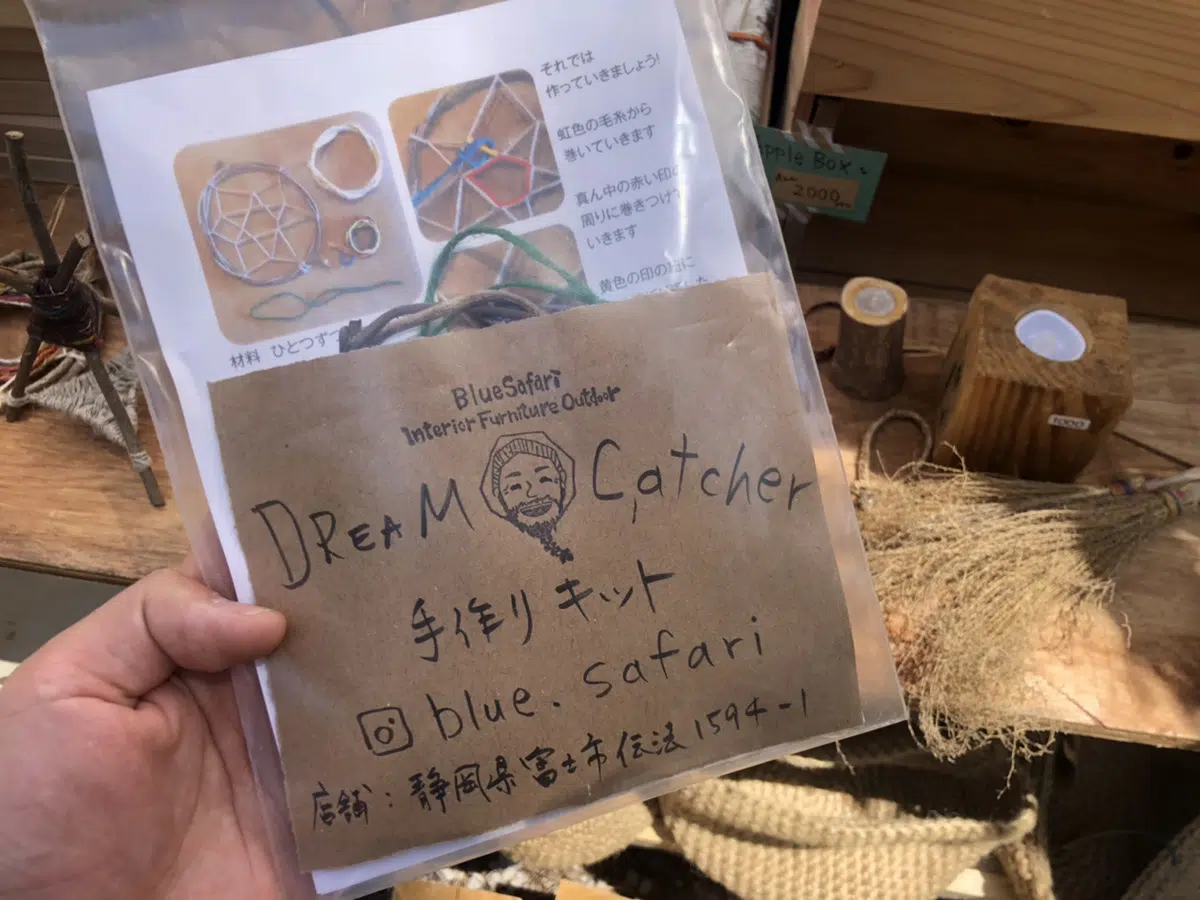 それでは
作っていきましょう!
虹色の毛糸から
巻いていきます
真ん中の赤い印の
周りに巻きつけて
いきます
黄色の印の紐に
材料 ひとつずつ
BlueSafari
Interior Furniture Outdoor
DREAM Catcher
手作りキット
blue.safari
店舗:静岡県富士市伝法1594-1
Apple Box
2000
1000